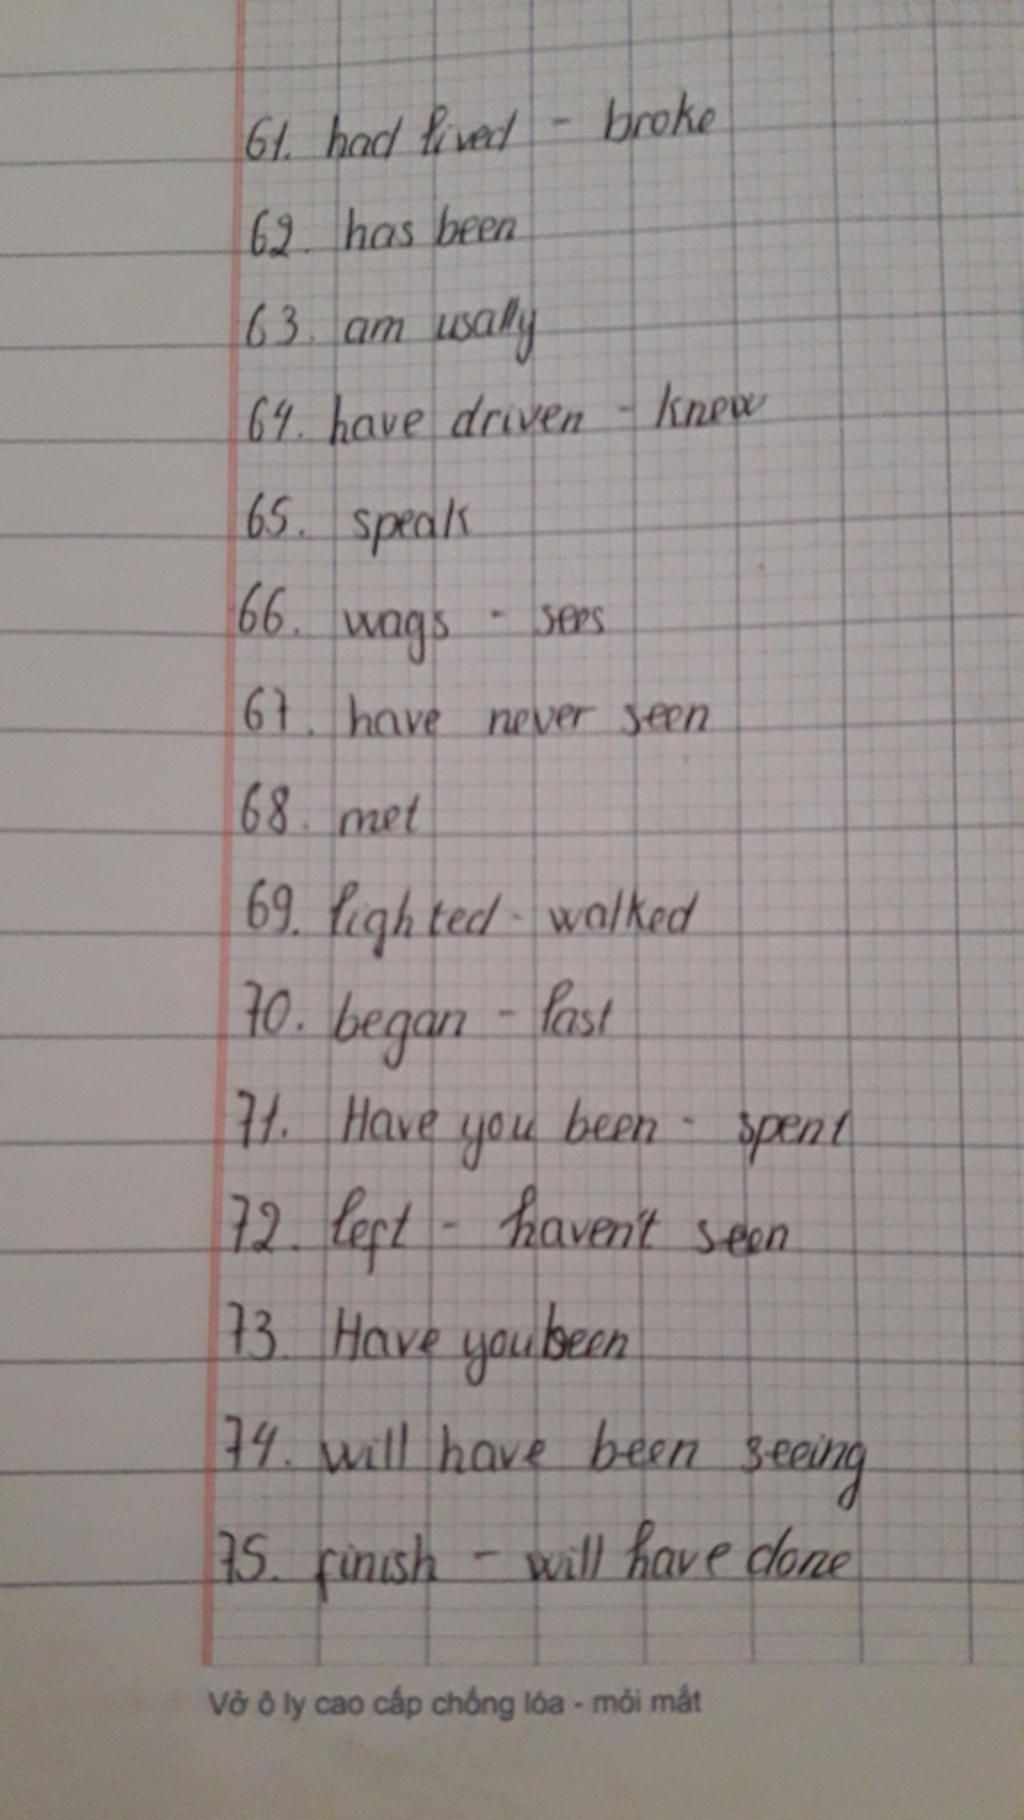 61. had lived - broke
62. has been
63. am usally
64. have driven - knew
65. speak
66. wags - sees
67. have never seen
68. met
69. lighted - walked
70. began - last
71. Have you been - spent
72. left - haven't seen
73. Have you been
74. will have been seeing
75. finish - will have done
Vở ô ly cao cấp chống lóa - mỏi mắt